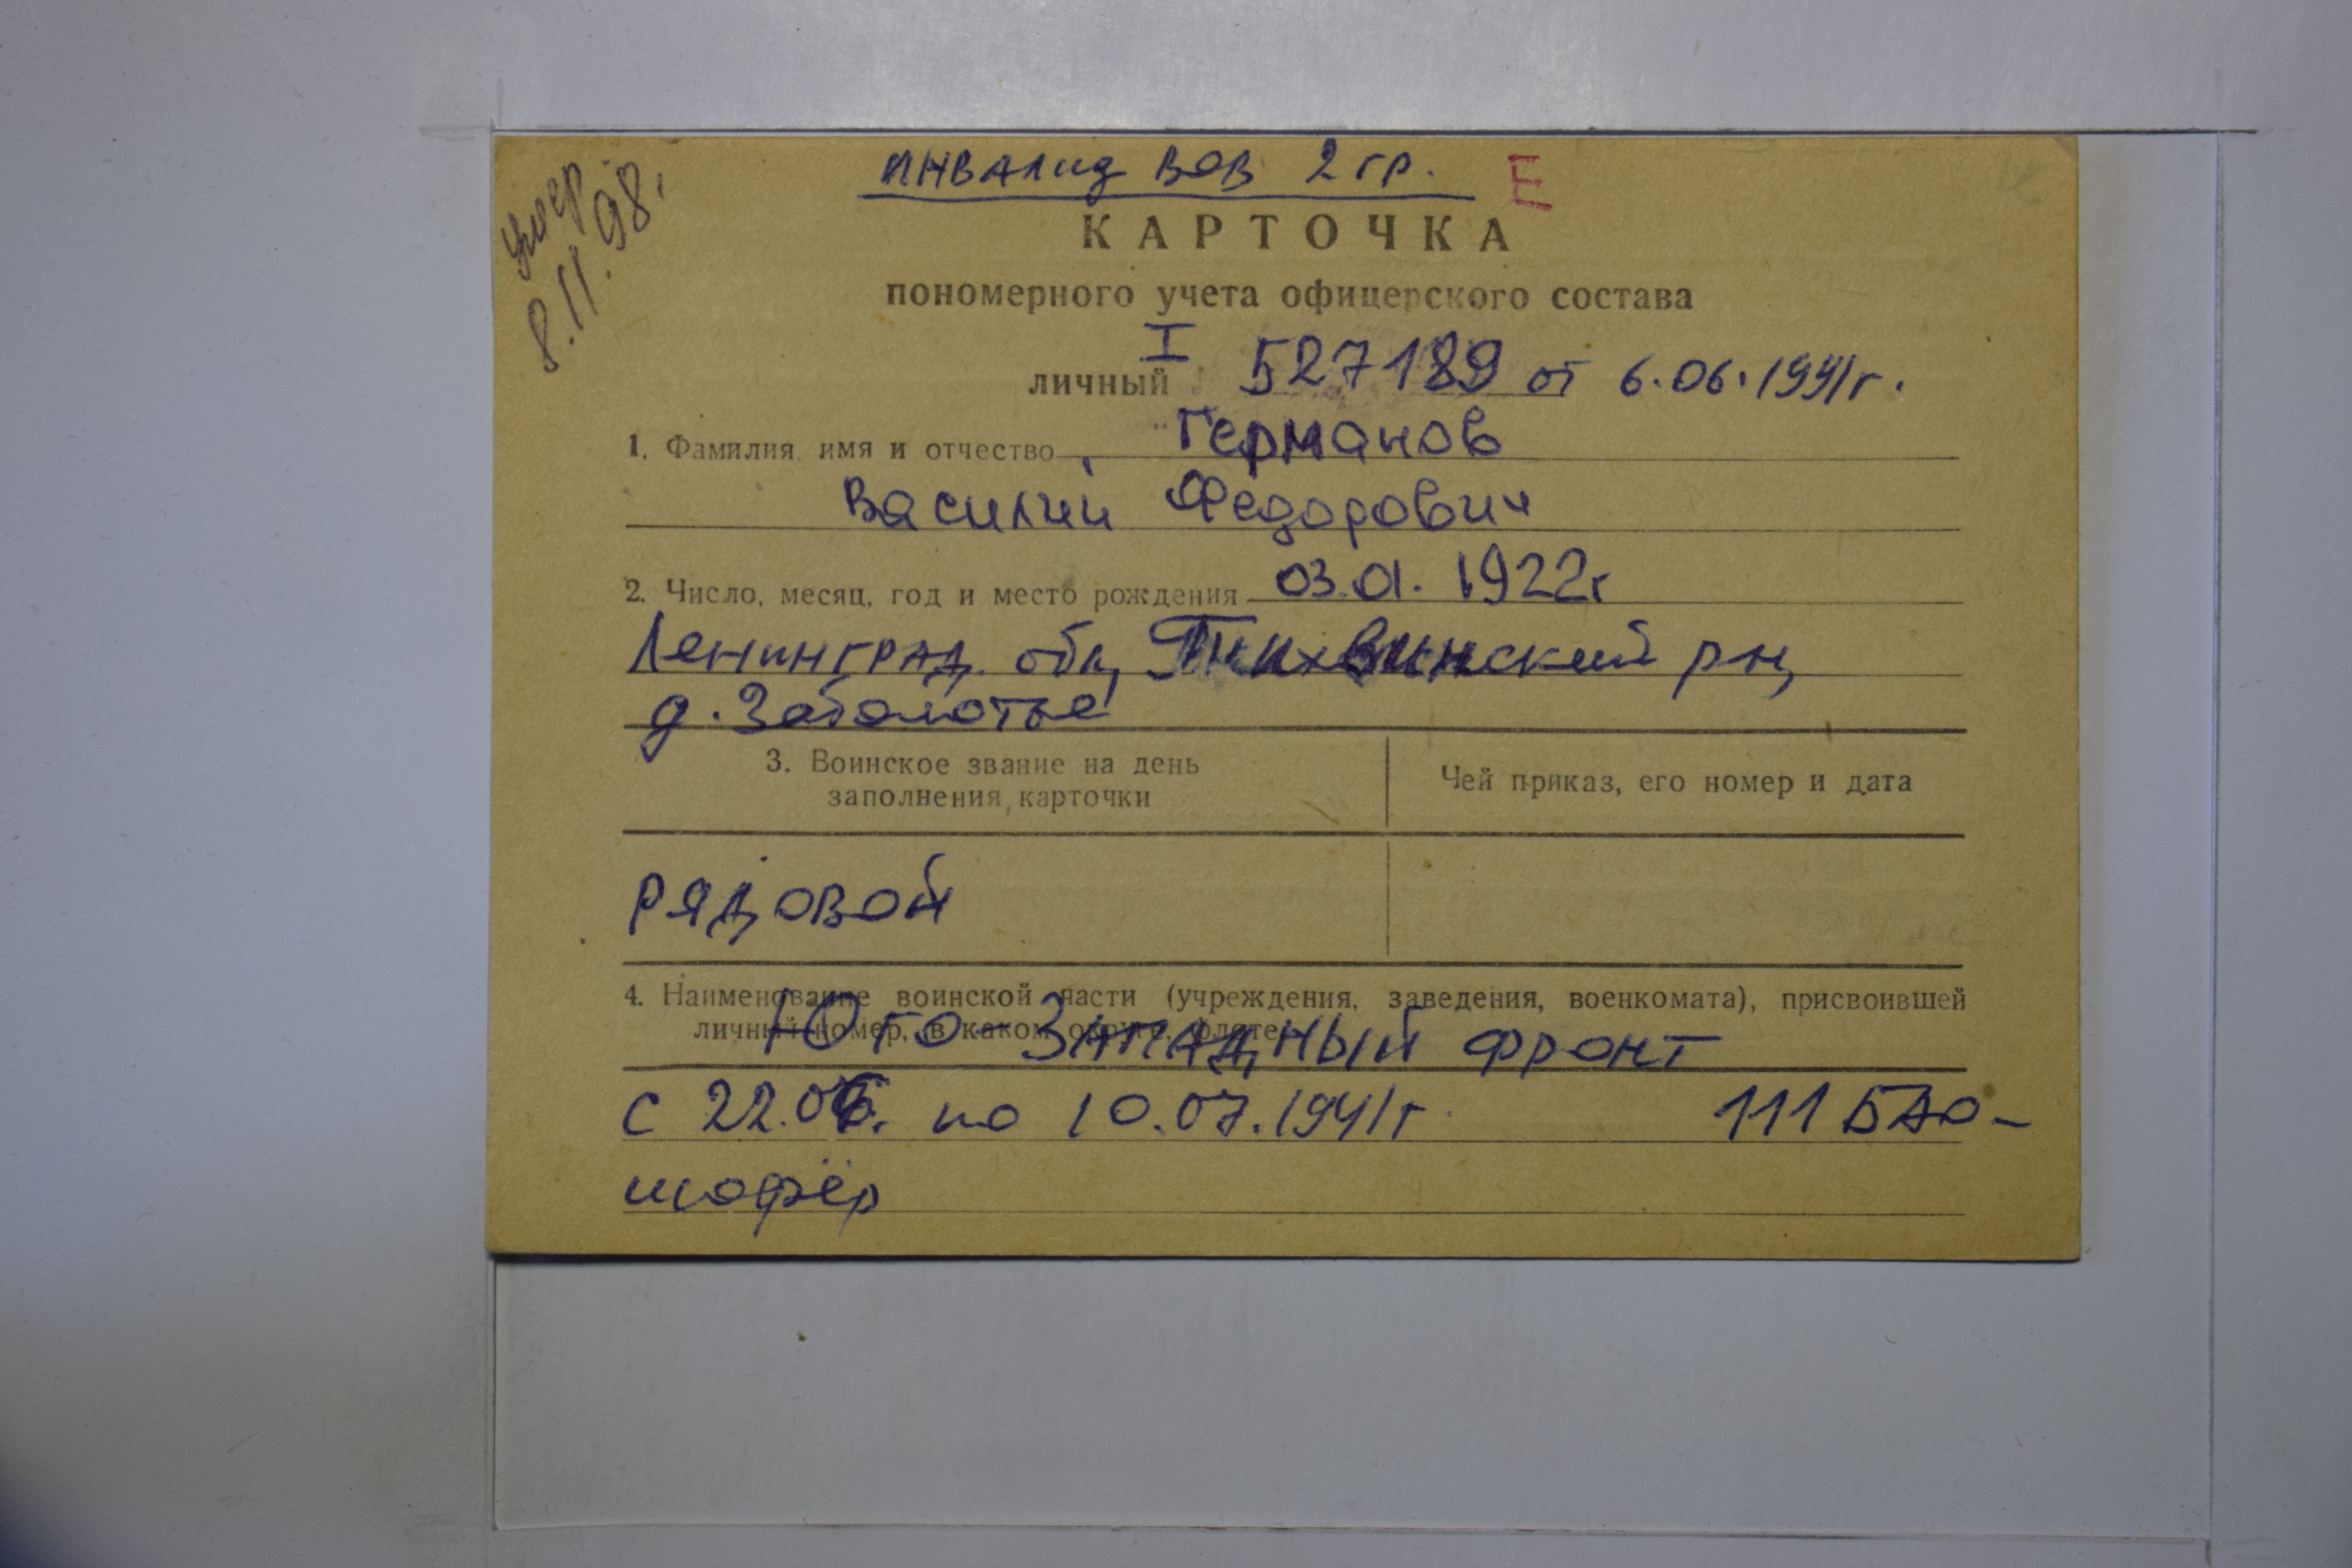 умер
8.11.98.
инвалид ВОВ 2 гр. Е
КАРТОЧКА
пономерного учета офицерского состава
личный I 527189 от 6.06.1941г.
1. Фамилия, имя и отчество Германов
Василий Федорович
2. Число, месяц, год и место рождения 03.01.1922г
Ленинград. обл, Тихвинский рн,
д. Заболотье
3. Воинское звание на день
заполнения карточки
Чей приказ, его номер и дата
рядовой
4. Наименование воинской части (учреждения, заведения, военкомата), присвоившей
личный номер, в каком округе, флоте
Юго-Западный фронт
с 22.06. по 10.07.1941г. 111 БАО-
шофёр